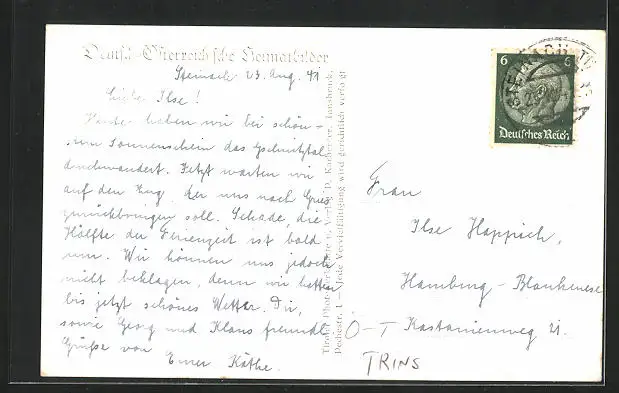 Deutsch-Österreichische Heimatbilder
Steinach 23. Aug. 41
Liebe Ilse!
Heute haben wir bei schön-
em Sonnenschein das Gschnitztal
durchwandert. Jetzt warten wir
auf den Zug, der uns nach Gries
zurückbringen soll. Schade, die
Hälfte der Ferienzeit ist bald
um. Wir können uns jedoch
nicht beklagen, denn wir hatten
bis jetzt schönes Wetter. Dir,
sowie Georg und Klaus freundl.
Grüße von
Eurer Käthe.
Tiroler Innsbruck,
Pechestr. 1 — Jede Vervielfältigung wird gerichtlich verfolgt
6 6
Deutsches Reich
STEINACH
Frau
Ilse Happich,
Hamburg-Blankenese
Kastanienweg
Ö-T
TRINS